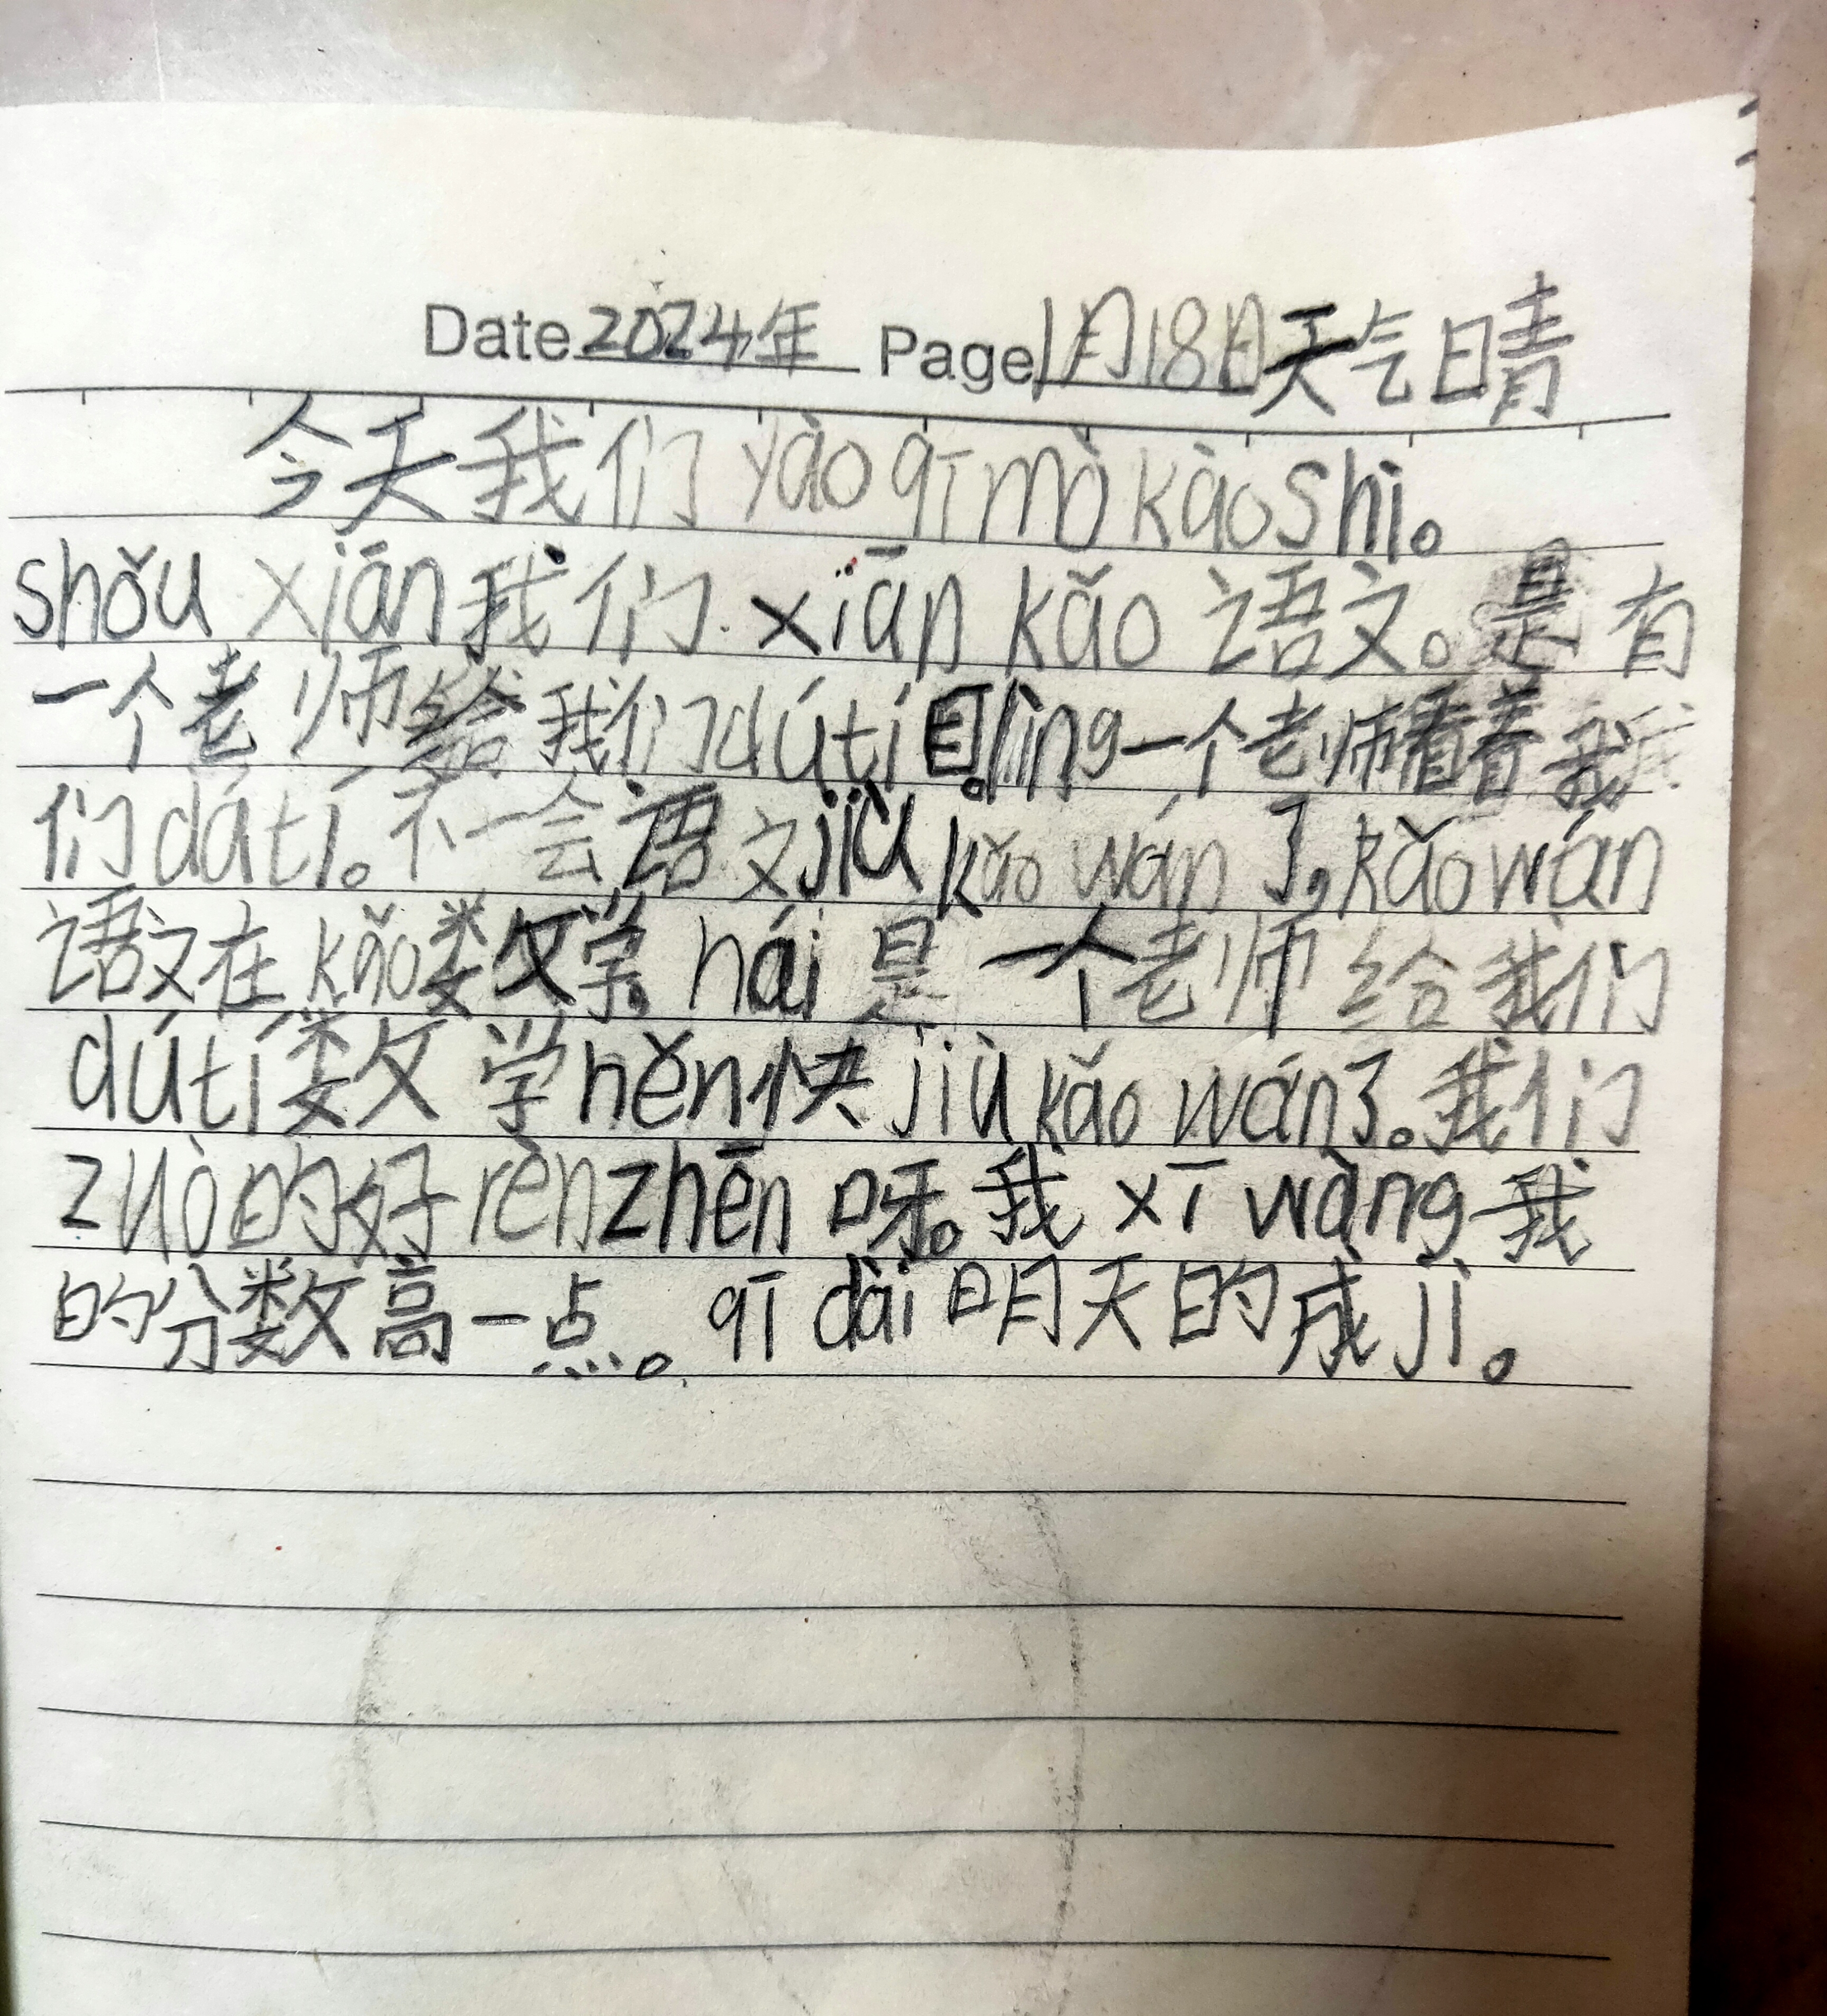 Date 2024年 Page 1月18日天气晴
今天我们yào qī mò kàoshì。
shǒu xiān我们xiān kǎo语文。是有
一个老师给我们dútí目。lìng一个老师看着我
们dátí。不一会语文jiù kǎo wán了，kǎo wán
语文在kǎo数学。hái是一个老师给我们
dútí数学hěn快jiù kǎo wán了。我们
zuò的好rènzhēn呀。我xī wàng我
的分数高一点。qī dài明天的成jì。